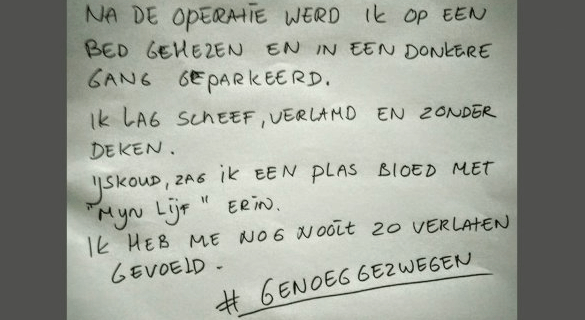 NA DE OPERATIE WERD IK OP EEN
BED GEHEZEN EN IN EEN DONKERE
GANG GEPARKEERD.
IK LAG SCHEEF, VERLAMD EN ZONDER
DEKEN.
IJSKOUD, ZAG IK EEN PLAS BLOED MET
"MYN LIJF" ERIN.
IK HEB ME NOG NOOIT ZO VERLATEN
GEVOELD.
# GENOEGGEZWEGEN